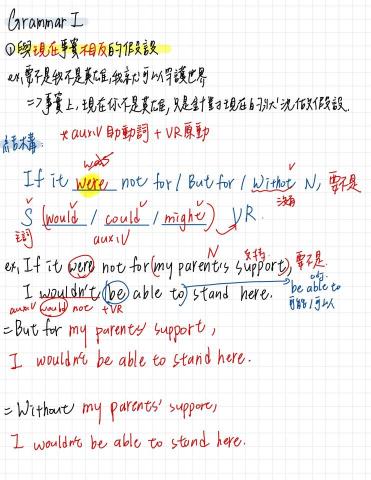 Grammar I
①與現在事實相反的假設
ex, 要不是我不是英雄,我就可以守護世界
=> 事實上,現在你不是英雄,只是針對現在的狀況做假設.
*auxiV助動詞 + VR原動
結構:
was
If it were not for / But for / Without N, 要不是
沒有
S (would / could / might) VR.
主詞 auxiV
N 支持
ex, If it were not for (my parents support), 要不是
I wouldn't be able to stand here. be able to
auxiV would not +VR 可能/可以
= But for my parents' support,
I wouldn't be able to stand here.
= Without my parents' support,
I wouldn't be able to stand here.